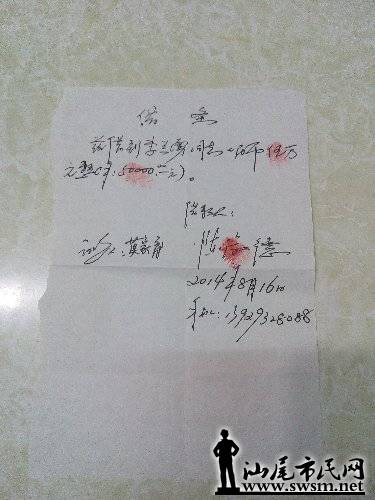 借 条
兹借到李 同志人民币伍万
元整(¥:50000.00元)。
借款人:
证人:莫家 陈 德
2014年8月16日
手机:13929328088
汕尾市民网
www.swsm.net